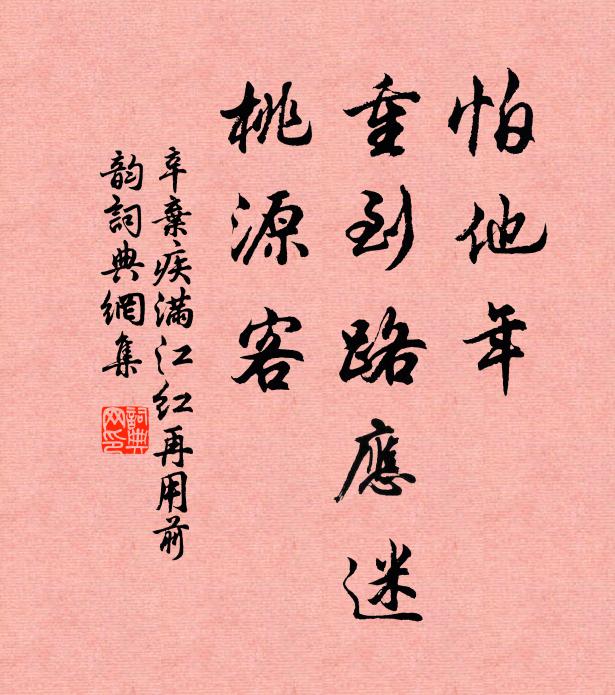 怕他年
重到路應迷
桃源客
辛棄疾滿江紅再用前
韵詞典網集
詞典
网印